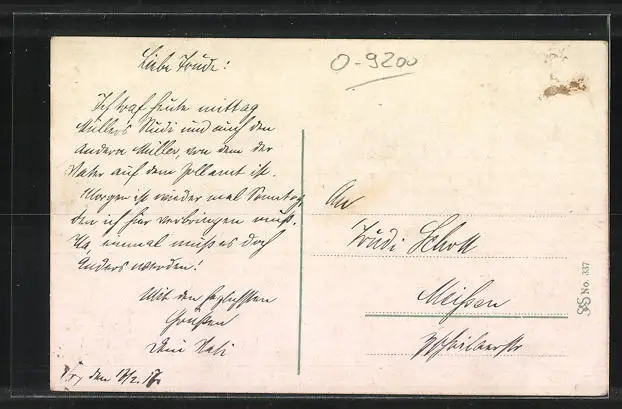 Liebe Trude!
Ich traf heute mittag
Müller's Rudi und auch den
anderen Müller, von dem der
Vater auf dem Zollamt ist.
Morgen ist wieder mal Sonntag,
den ich hier verbringen muß.
Na, einmal muß es doch
anders werden!
Mit den herzlichsten
Grüßen
Dein
den 17/2. 17.
O-9200
An
Trudi Schott
Meißen
No. 337